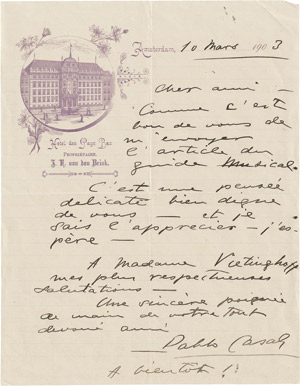 Amsterdam, 10 Mars 1903
Hotel des Pays Bas
Propriétaire
J. H. van den Brink.
Cher ami —
Comme c'est
bon de vous de
m'envoyer
l'article du
guide musical.
C'est une pensée
délicate bien digne
de vous — et je
sais l'apprecier — j'es-
père —
A Madame Vietinghoff
mes plus respectueuses
salutations —
Une sincère poignée
de main de votre tout
devoué ami
Pablo Casals
A bientôt !!